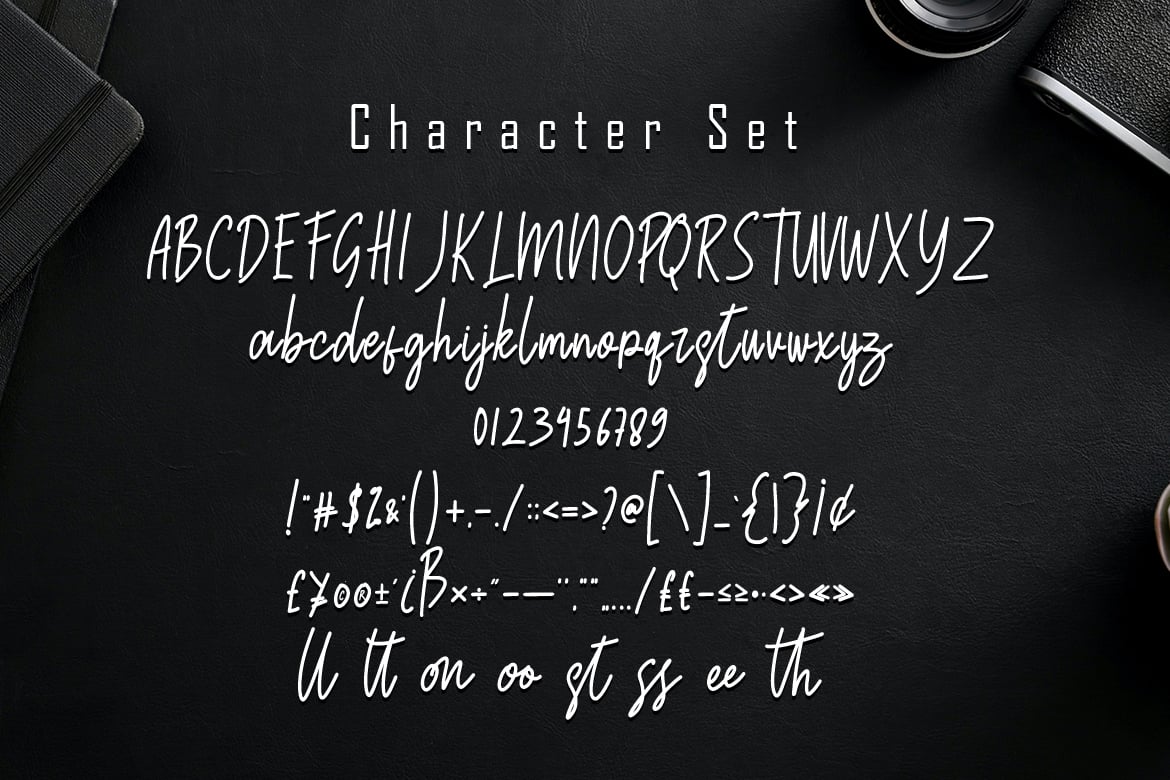 Character Set
ABCDEFGHIJKLMNOPQRSTUVWXYZ
abcdefghijklmnopqrstuvwxyz
0123456789
!"#$%&'()+,-./:;<=>?@[\]_`{|}¡¢
£¥©®±´¿ß×÷˝–—‘’‚“”„…/₤€−≤≥•·‹›«»
ll tt on oo st ss ee th